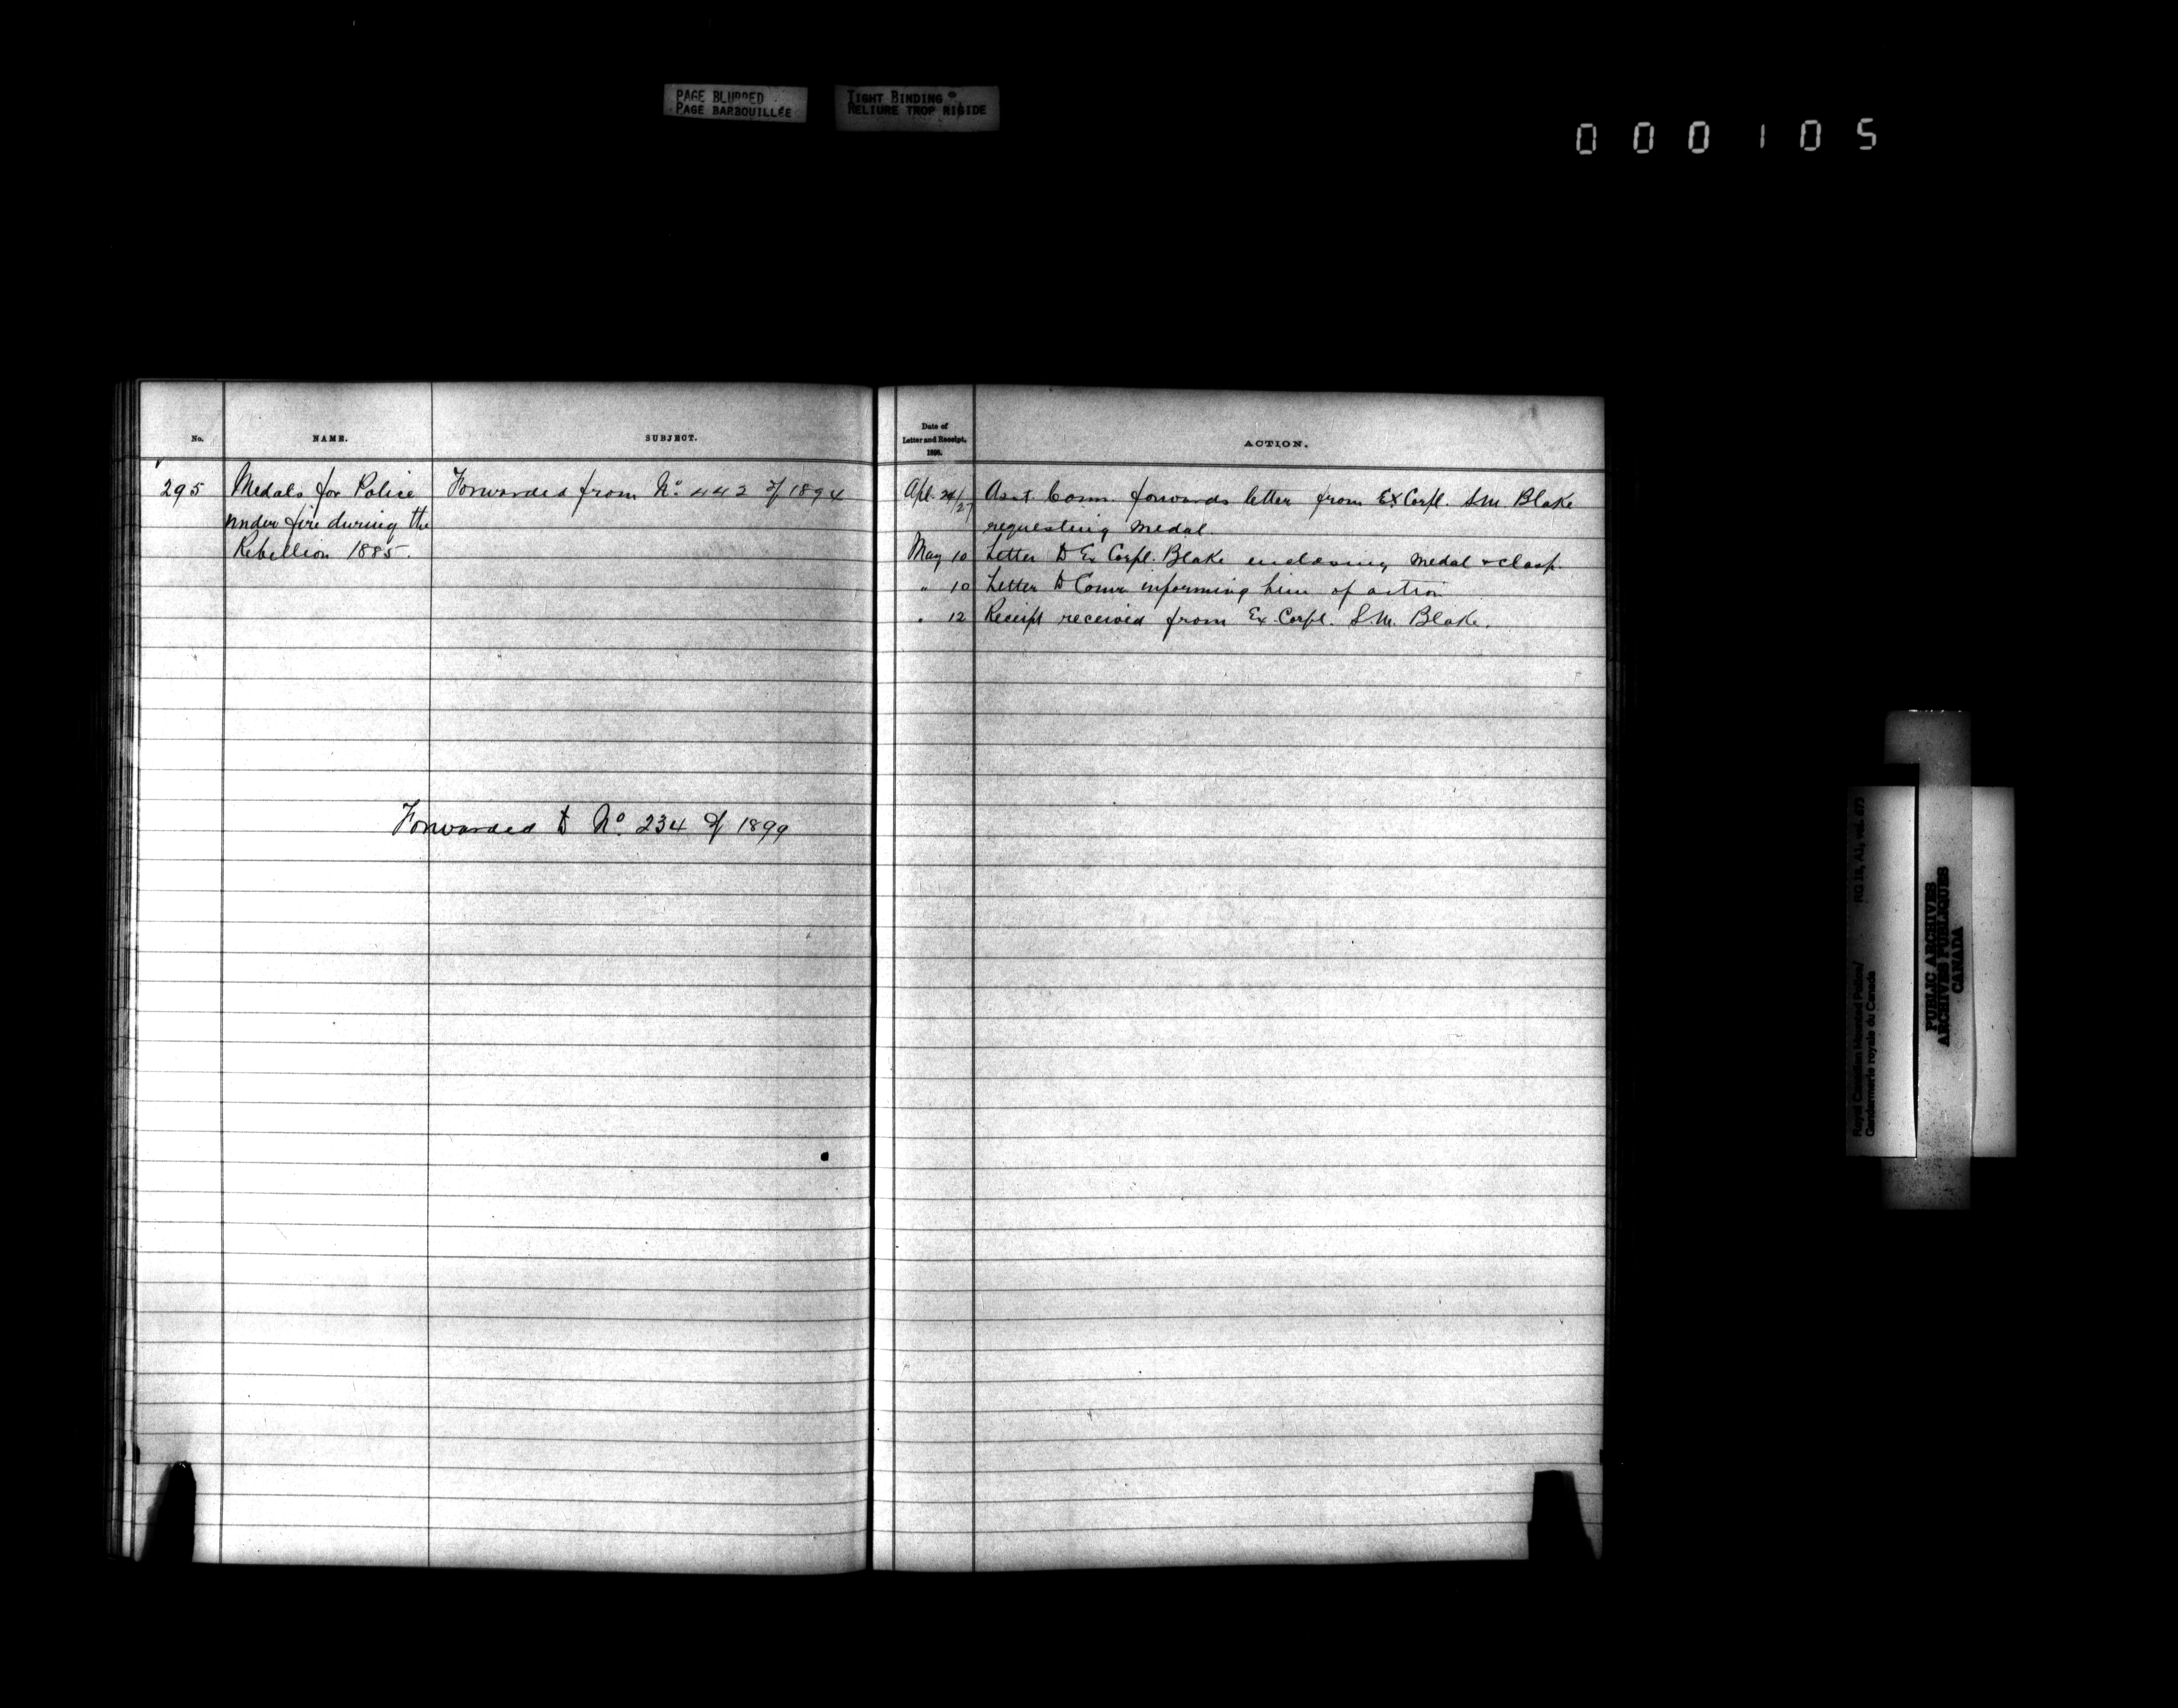 PAGE BLURRED
PAGE BARBOUILLÉE
TIGHT BINDING
RELIURE TROP RIGIDE
000105
No.
NAME.
SUBJECT.
Date of
Letter and Receipt,
ACTION.
295
Medals for Police
under fire during the
Rebellion 1885.
Forwarded from No. 442 of 1894
Forwarded to No. 234 of 1899
Apl. 24/27 Asst. Comm. forwards letter from Ex Corpl. S.M. Blake
requesting medal.
May 10 Letter to Ex Corpl. Blake enclosing medal & clasp.
" 10 Letter to Comr informing him of action
" 12 Receipt received from Ex. Corpl. S.M. Blake.
Royal Canadian Mounted Police/
Gendarmerie royale du Canada
RG 18, A1, vol.
PUBLIC ARCHIVES
ARCHIVES PUBLIQUES
CANADA